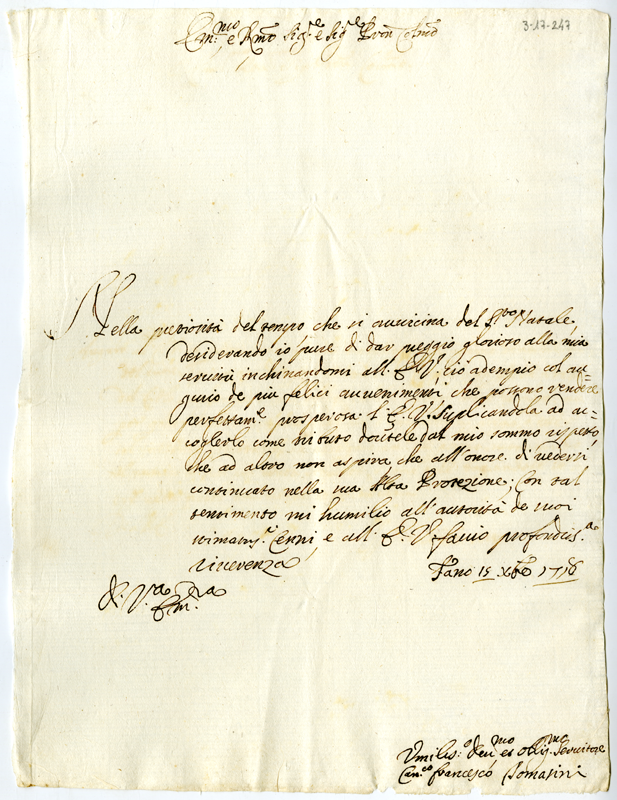 3-17-247
Em.mo e Rmo Sig.e e Sig.e Pron Colmo
Nella preziosità del tempo che si avvicina del S.mo Natale,
desiderando io pure di dar preggio glorioso alla mia
servitù inchinandomi all' E. V. ciò adempio col au=
gurio de più felici avvenimenti che possono rendere
perfettam.e prosperosa l' E. V. Suplicandola ad ac=
coglierlo come tributo dovutele dal mio sommo rispetto,
che ad altro non aspira che all' onore di vedersi
continuato nella sua Alta Protezione; Con tal
sentimento mi humilio all' autorità de suoi
stimatiss.i Cenni, e all' E. V. faccio profondiss.a
riverenza
Fano 15 Xbre 1716
D. V.ra Em.za
Umiliss.o Dev.mo et Obbl.mo Servitore
Can.co Francesco Tomasini